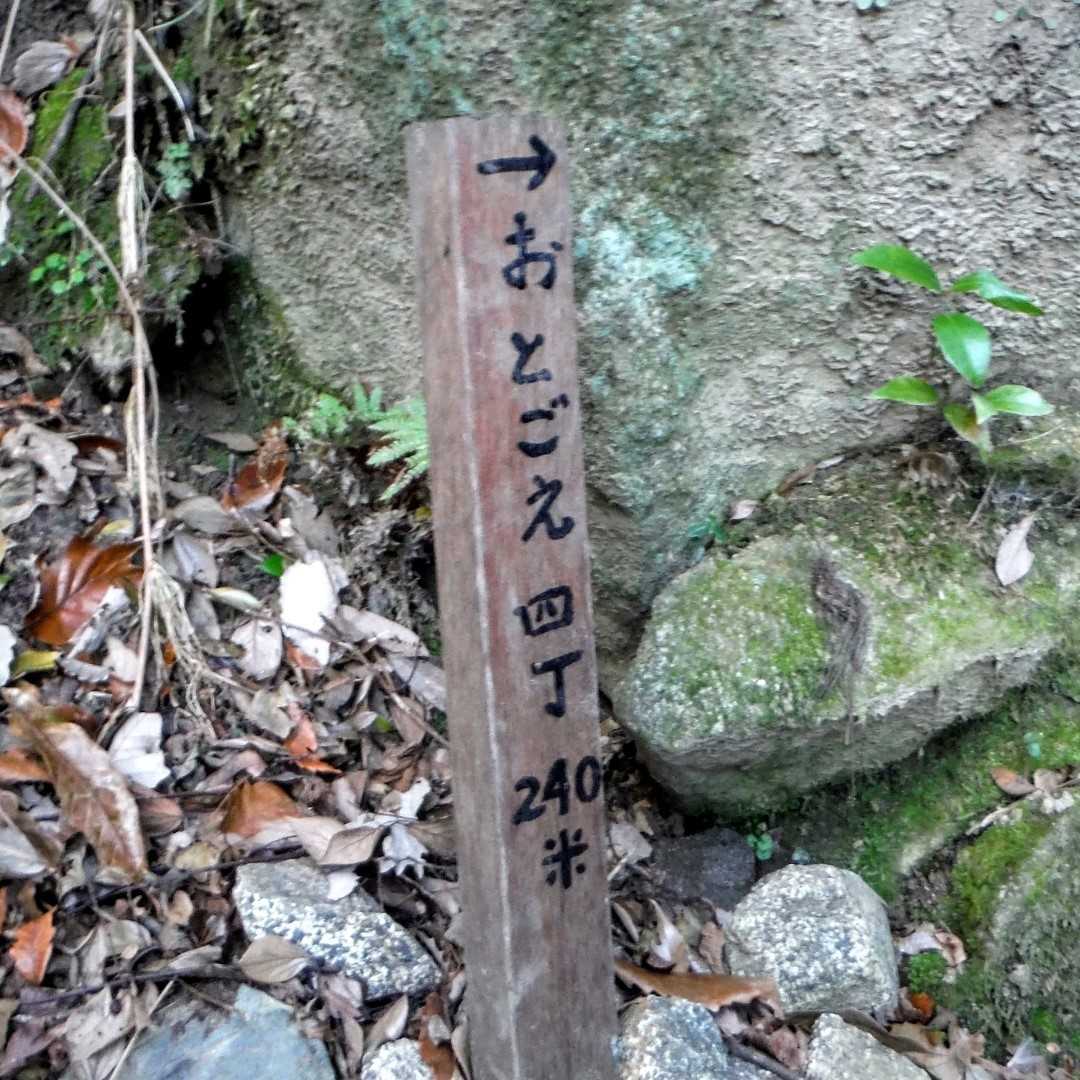 →
おとごえ 四丁
240
米